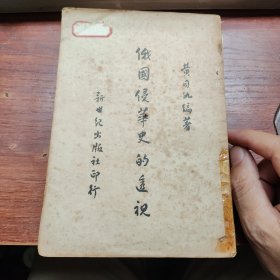 黄同仇編著
俄國侵華史的透視
新世紀出版社印行